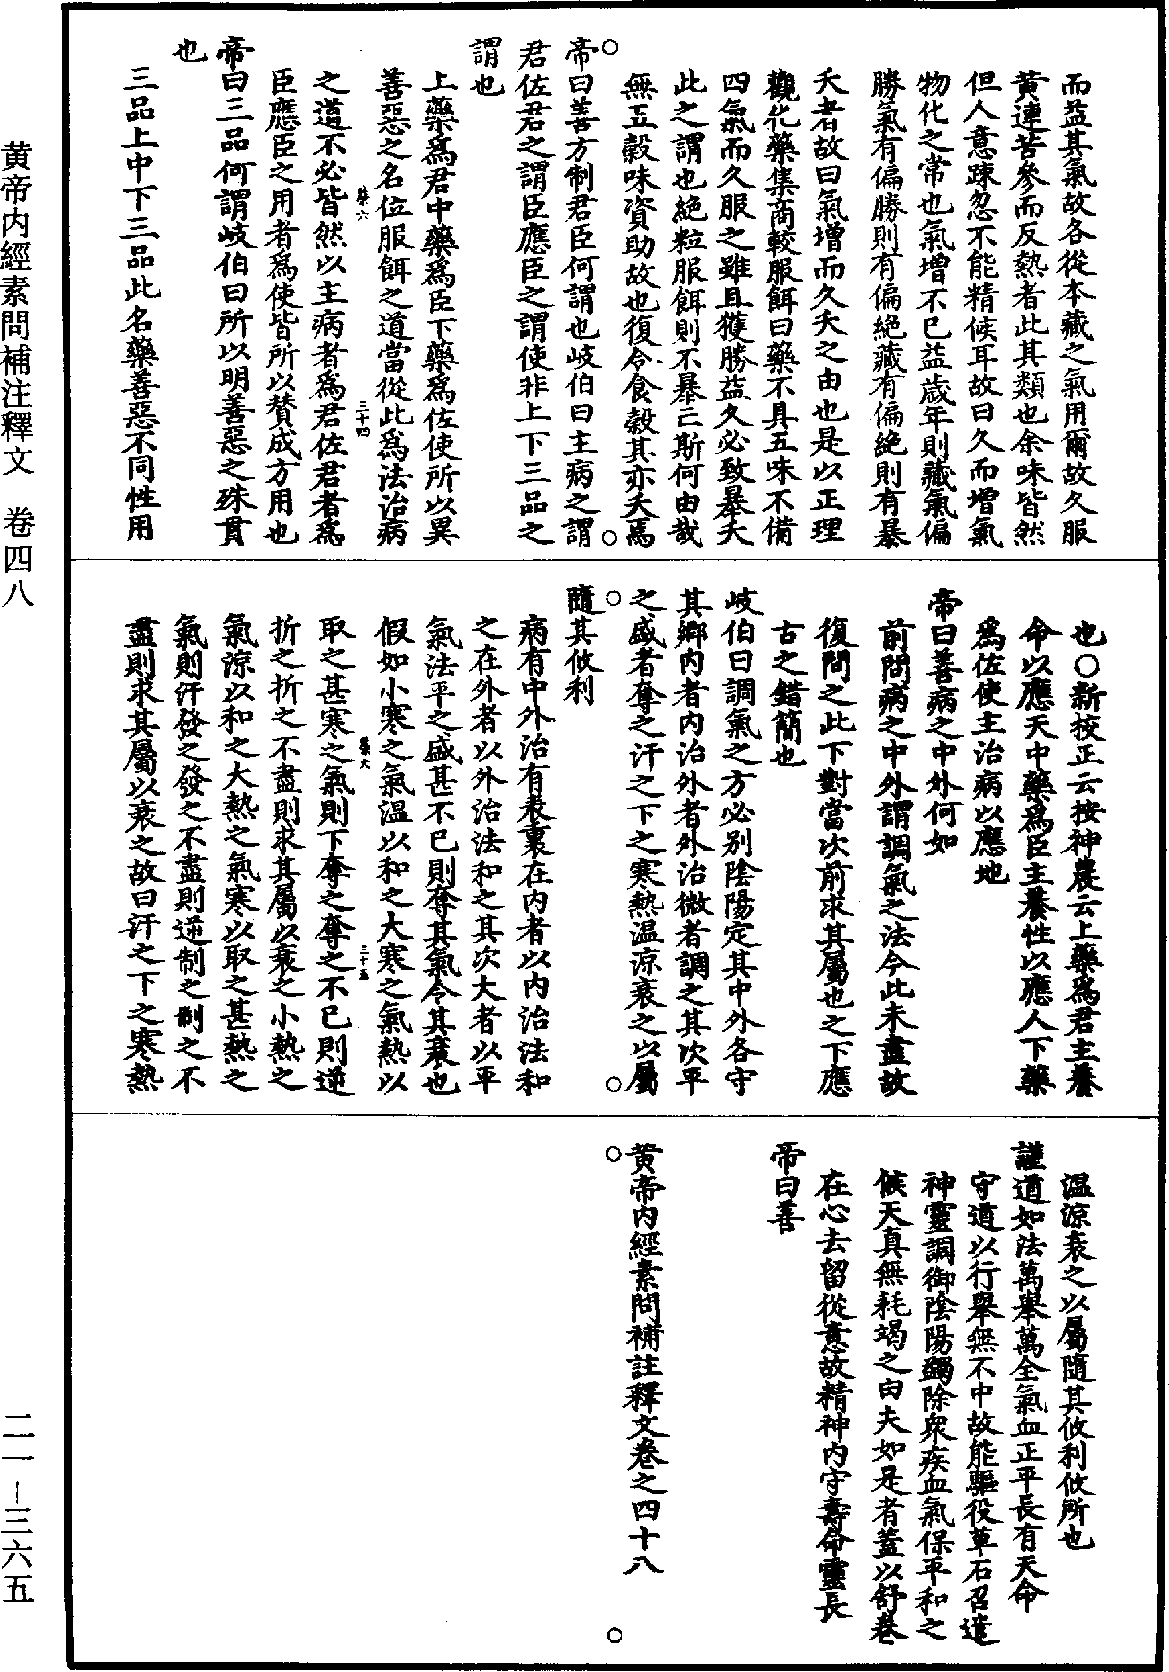 而益其氣故各從本藏之氣用爾故久服
黃連苦參而反熱者此其類也余味皆然
但人意踈忽不能精候耳故曰久而增氣
物化之常也氣增不已益歲年則藏氣偏
勝氣有偏勝則有偏絕藏有偏絕則有暴
夭者故曰氣增而久夭之由也是以正理
觀化藥集商較服餌曰藥不具五味不備
四氣而久服之雖且獲勝益久必致暴夭
此之謂也絕粒服餌則不暴亡斯何由哉
無五穀味資助故也復令食穀其亦夭焉
帝曰善方制君臣何謂也岐伯曰主病之謂
君佐君之謂臣應臣之謂使非上下三品之
謂也
上藥爲君中藥爲臣下藥爲佐使所以異
善惡之名位服餌之道當從此爲法治病
之道不必皆然以主病者爲君佐君者爲
臣應臣之用者爲使皆所以贊成方用也
帝曰三品何謂岐伯曰所以明善惡之殊貫
也
三品上中下三品此名藥善惡不同性用
也○新校正云按神農云上藥爲君主養
命以應天中藥爲臣主養性以應人下藥
爲佐使主治病以應地
帝曰善病之中外何如
前問病之中外謂調氣之法今此未盡故
復問之此下對當次前求其屬也之下應
古之錯簡也
岐伯曰調氣之方必別陰陽定其中外各守
其鄉內者內治外者外治微者調之其次平
之盛者奪之汗之下之寒熱温涼衰之以屬
隨其攸利
病有中外治有表裏在內者以內治法和
之在外者以外治法和之其次大者以平
氣法平之盛甚不已則奪其氣令其衰也
假如小寒之氣温以和之大寒之氣熱以
取之甚寒之氣則下奪之奪之不已則逆
折之折之不盡則求其屬以衰之小熱之
氣涼以和之大熱之氣寒以取之甚熱之
氣則汗發之發之不盡則逆制之制之不
盡則求其屬以衰之故曰汗之下之寒熱
温涼衰之以屬隨其攸利攸所也
謹道如法萬舉萬全氣血正平長有天命
守道以行舉無不中故能驅役草石召遣
神靈調御陰陽蠲除衆疾血氣保平和之
候天真無耗竭之由夫如是者蓋以舒卷
在心去留從意故精神內守壽命靈長
帝曰善
黃帝內經素問補註釋文卷之四十八
黄帝內經素問補注釋文　卷四八
二一—三六五